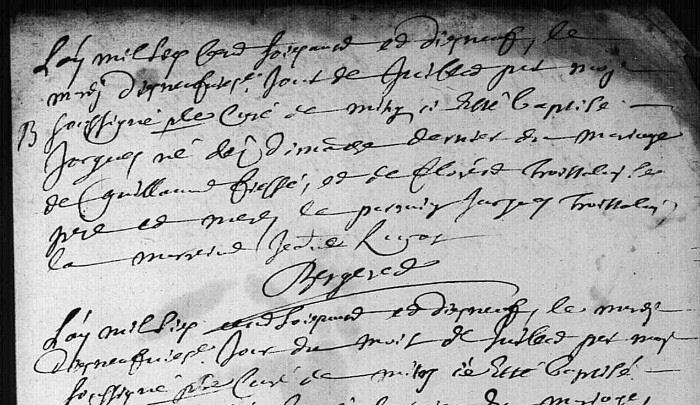 L'an mil six cent soixante et dix neuf, le
mardy dixneufviesme Jour de Juillet par moy
B soussigné prbre Curé de mitry a esté baptisé
Jacques né dez dimanche dernier du mariage
de Guillaume et de
pere et mere, le parrain Jacques
la marreine Jeanne
Bergeret
L'an mil six cent soixante et dixneuf, le mardy
dixneufviesme Jour du mois de Juillet par moy
soussigné prbre Curé de mitry a esté baptisé
du mariage,